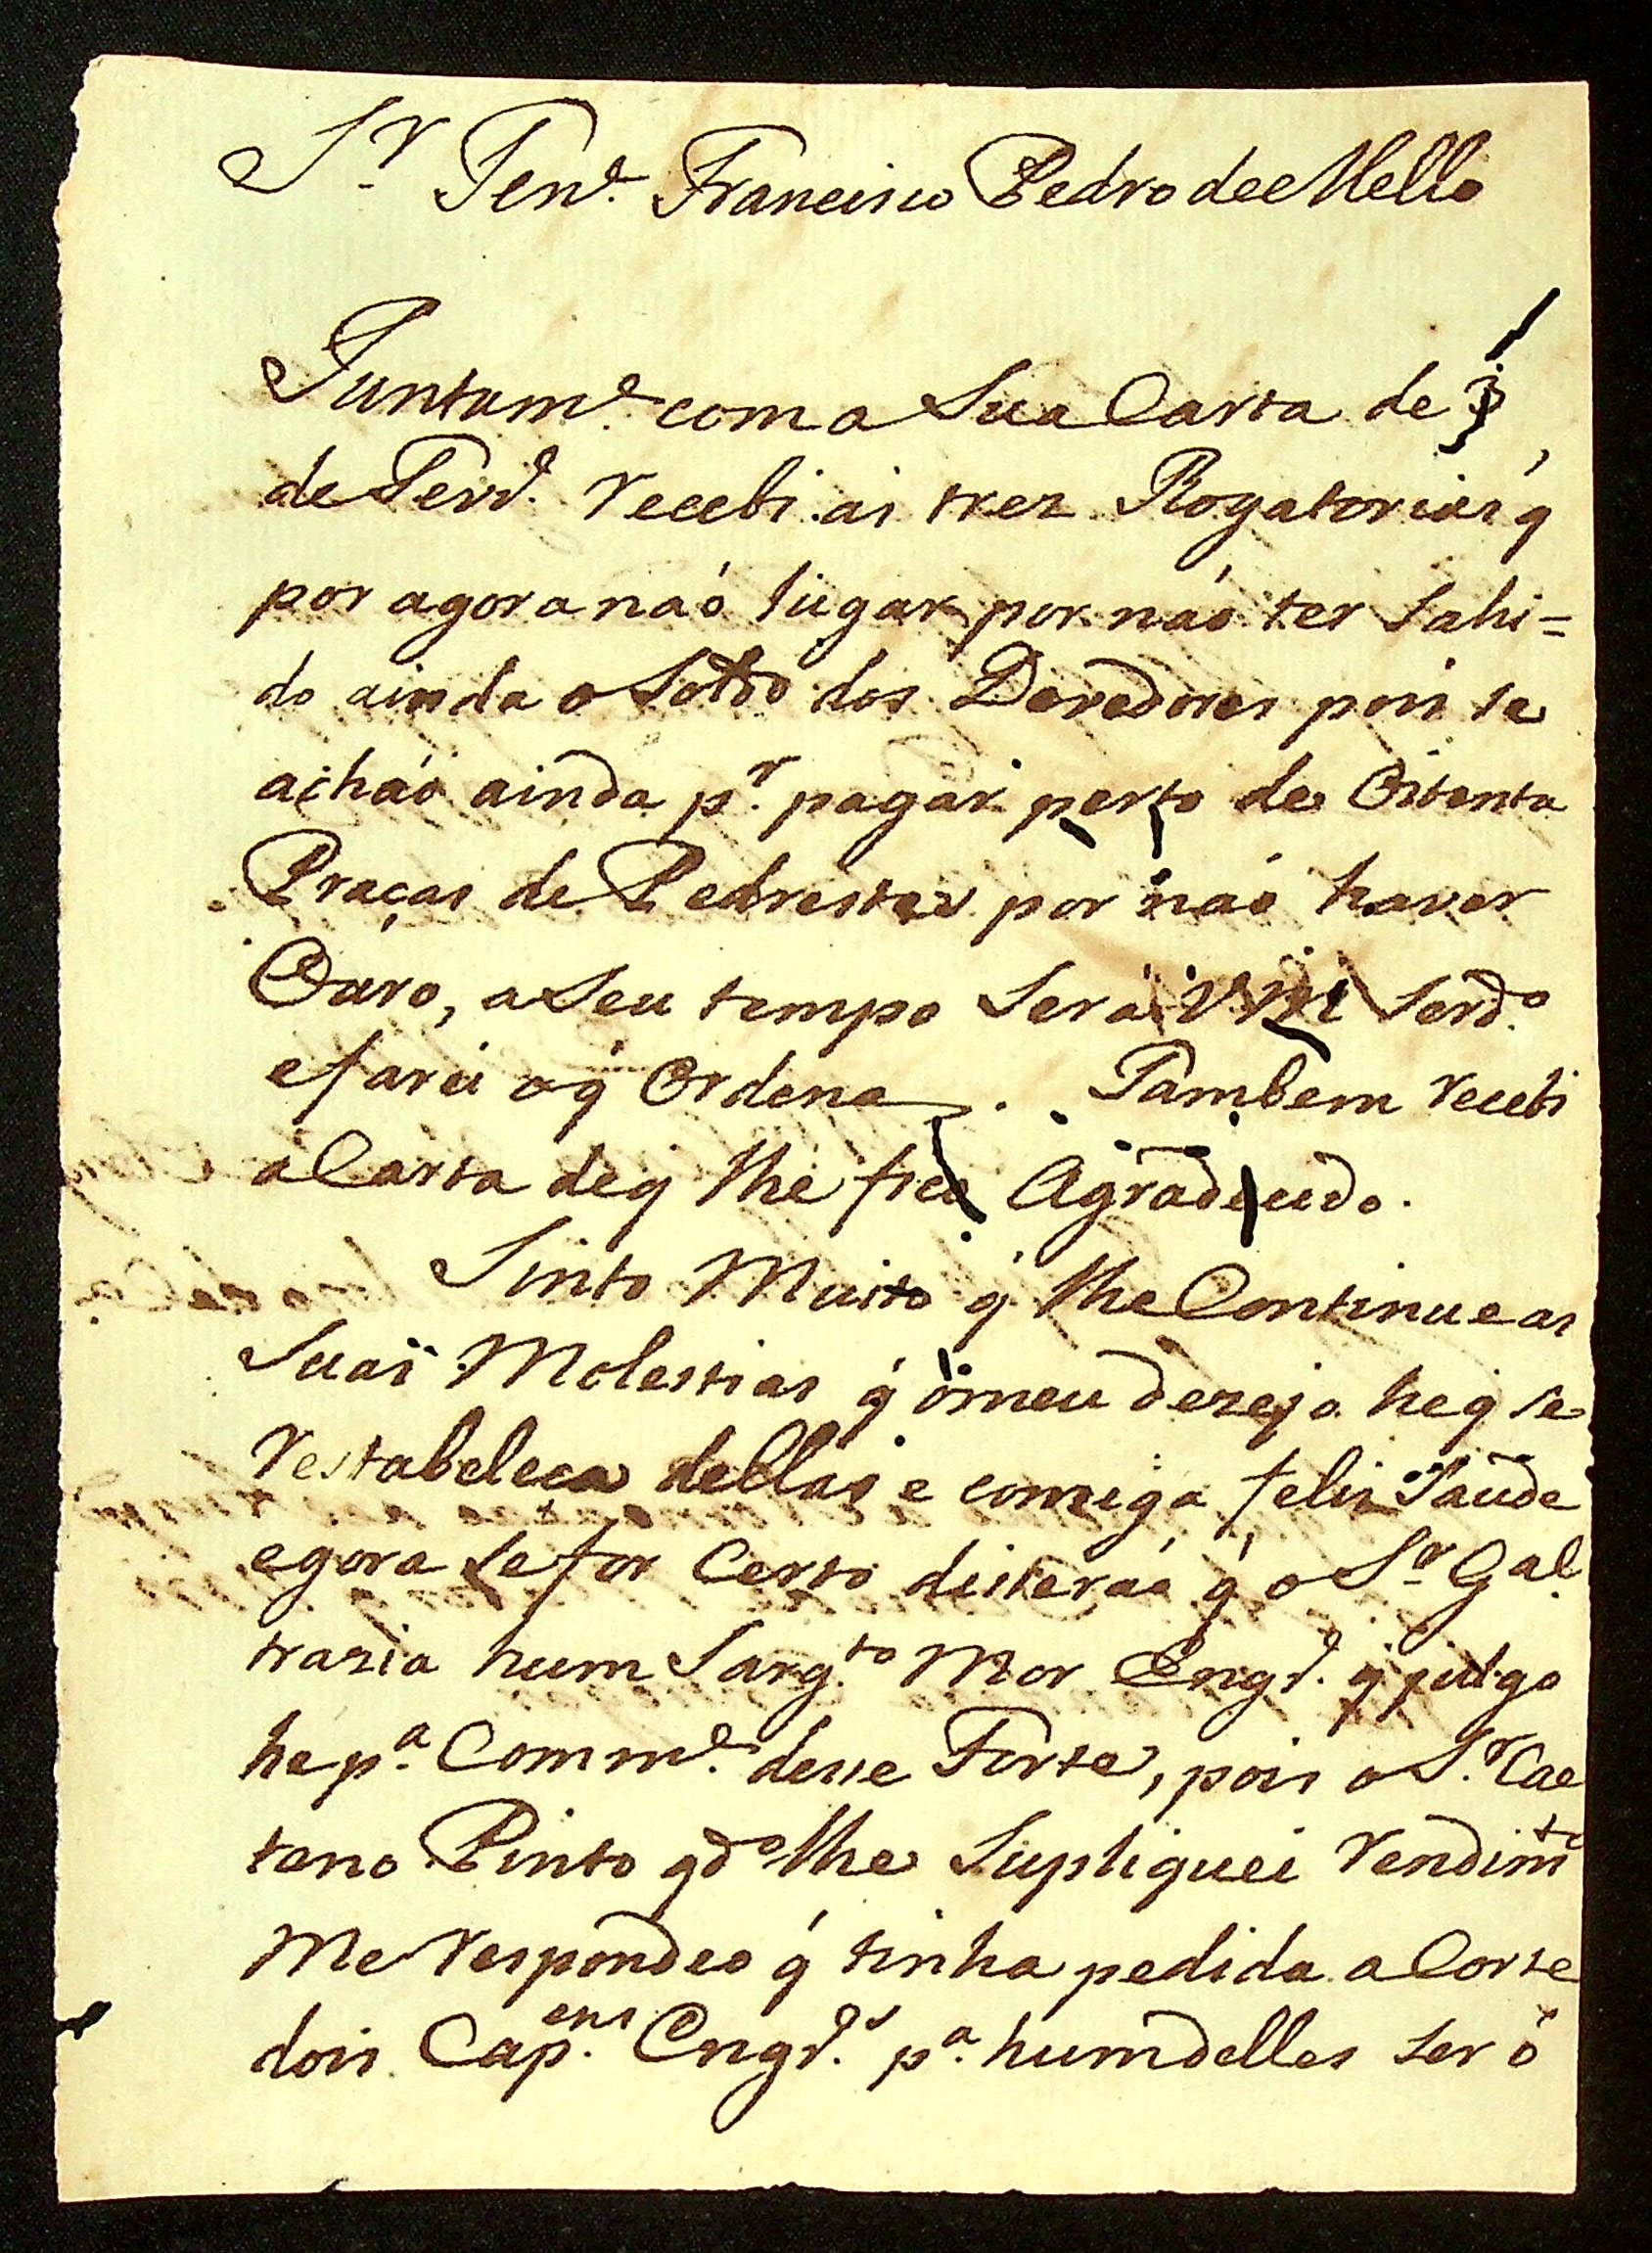 Sr. Tene. Francisco Pedro de Mello
Juntame. com a Sua Carta de 3
de Fevro. recebi as trez Rogatorias q́
por agora naó lugar por naó ter sahi=
do ainda o Soldo dos Devedores pois se
achaó ainda pr. pagar perto de Oitenta
Praças de Pedrestes por naó haver
Ouro, a Seu tempo Será VMce Servdo.
e farei o q́ Ordena. Tambem recebi
a Carta de q́ lhe fico Agradecido.
Sinto Muito q́ lhe Continue as
Suas Molestias q́ o meu dezejo he q́ se
restabeleca dellas e comsiga felis Saude
egora se for Certo disseraó q́ o Sr. Gal.
trazia hum Sargto. Mor Engro. q́ julgo
he pa. Comme. desse Forte, pois o Sr. Cae
tano Pinto qdo. lhe Supliquei rendimto
Me respondeo q́ tinha pedida a Corte
dois Capens. Engros. pa. hum delles ser o